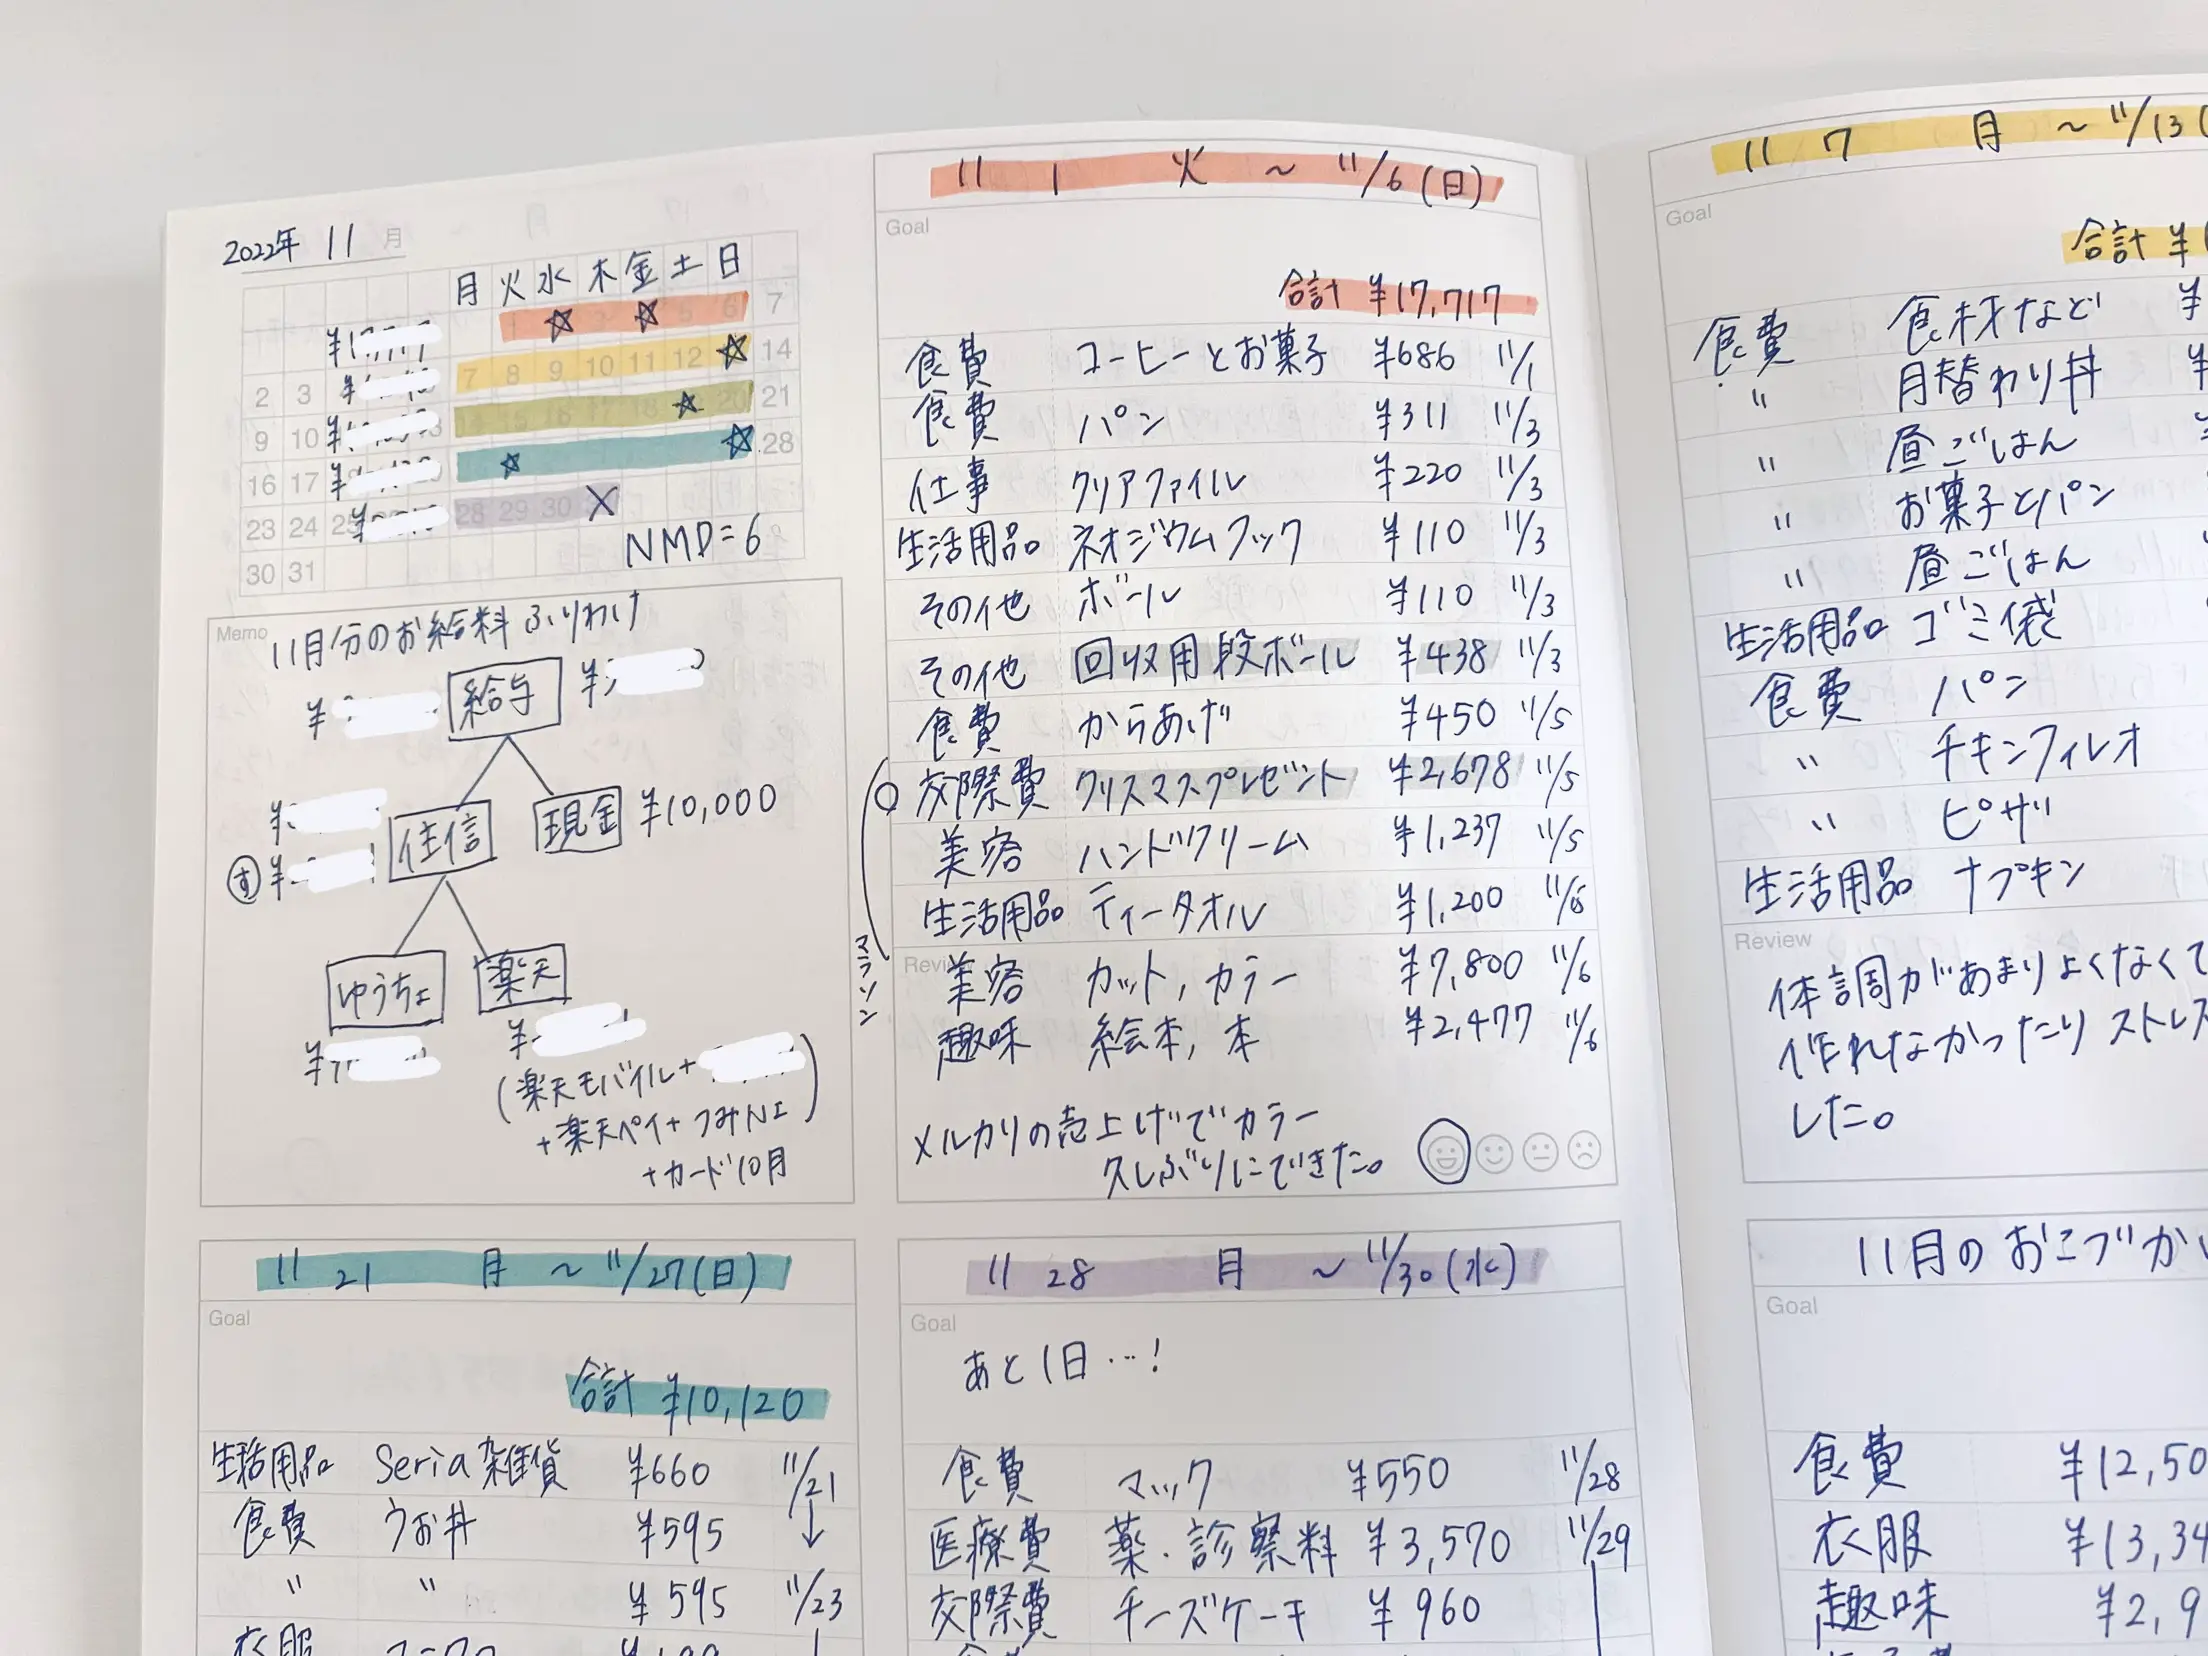 2022年 11 月
月 火 水 木 金 土 日
1 3 5 6 7
2 3 7 8 9 10 11 12 14
9 10 15 16 17 18 20 21
16 17 28
23 24 25 28 29 30
30 31
NMD=6
Memo
11月分のお給料ふりわけ
給与
住信
現金 ¥10,000
ゆうちょ
楽天
(楽天モバイル+
+楽天ペイ+つみNI
+カード10月
11 1 火 ～ 11/6(日)
Goal
合計 ¥17,717
食費 コーヒーとお菓子 ¥686 11/1
食費 パン ¥311 11/3
仕事 クリアファイル ¥220 11/3
生活用品 ネオジウムフック ¥110 11/3
その他 ボール ¥110 11/3
その他 回収用段ボール ¥438 11/3
食費 からあげ ¥450 11/5
交際費 クリスマスプレゼント ¥2,678 11/5
美容 ハンドクリーム ¥1,237 11/5
生活用品 ティータオル ¥1,200
マラソン
Review
美容 カット,カラー ¥7,800 11/6
趣味 絵本,本 ¥2,477 11/6
メルカリの売上げでカラー
久しぶりにできた。
11 7 月 ～ 11/13(
Goal
合計 ¥1
食費 食材など ¥
〃 月替わり丼 ¥
〃 昼ごはん
〃 お菓子とパン
〃 昼ごはん
生活用品 ゴミ袋
食費 パン
〃 チキンフィレオ
〃 ピザ
生活用品 ナプキン
Review
体調があまりよくなくて
作れなかったりストレス
した。
11 21 月 ～ 11/27(日)
Goal
合計 ¥10,120
生活用品 Seria雑貨 ¥660 11/21
食費 うお丼 ¥595 ↓
〃 〃 ¥595 11/23
衣服
11 28 月 ～ 11/30(水)
Goal
あと1日…!
食費 マック ¥550 11/28
医療費 薬・診察料 ¥3,570 11/29
交際費 チーズケーキ ¥960
11月のおこづかい
Goal
食費 ¥12,50
衣服 ¥13,34
趣味 ¥2,9